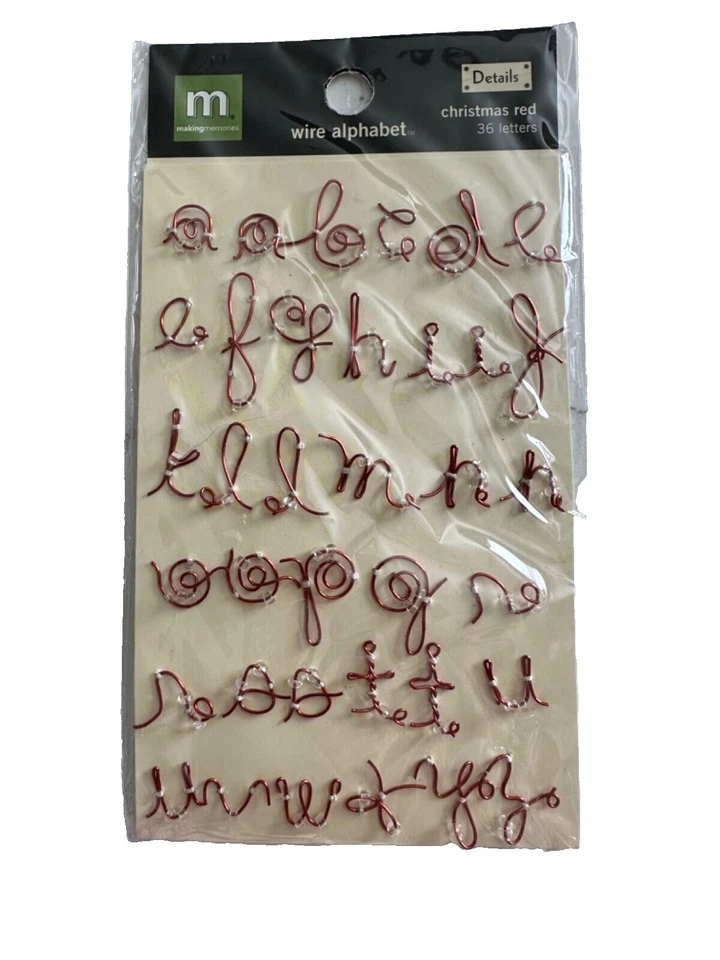 m
makingmemories
Details
wire alphabet™
christmas red
36 letters
a a b c d e
e f g h i i j
k l l m n n
o o p q r
r s s t t u
u v w x y z